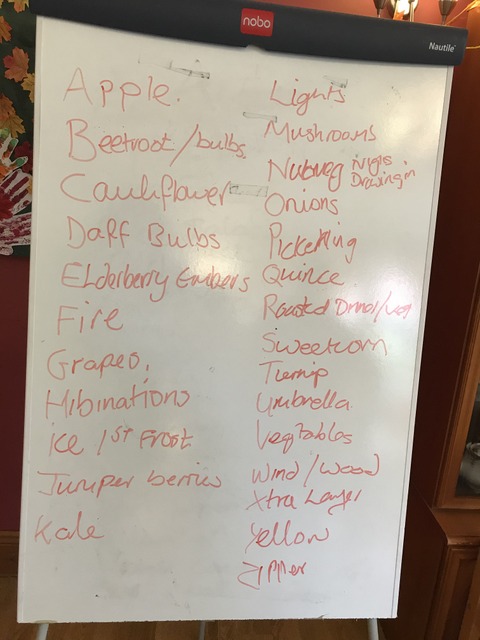 nobo
Nautile
Apple.
Beetroot/bulbs.
Cauliflower
Daff Bulbs
Elderberry Embers
Fire
Grapes,
Hibinations
Ice / 1st Frost
Juniper berries
Kale
Lights
Mushrooms
Nutmeg nights
Drawing in
Onions
Pickelling
Quince
Roasted Dinner/veg
Sweetcorn
Turnip
Umbrella
Vegtables
Wind/Wood
Xtra Layer
Yellow
Zipper